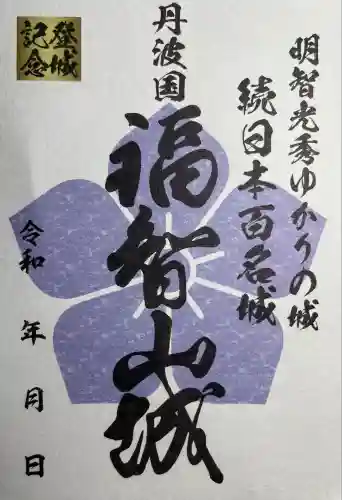 明智光秀ゆかりの城
続日本百名城
丹波国
福智山城
登城
記念
令和 年 月 日